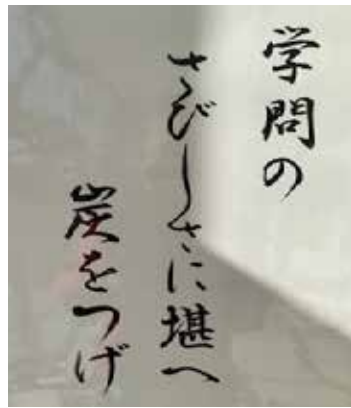 学問の
さびしさに堪へ
炭をつげ